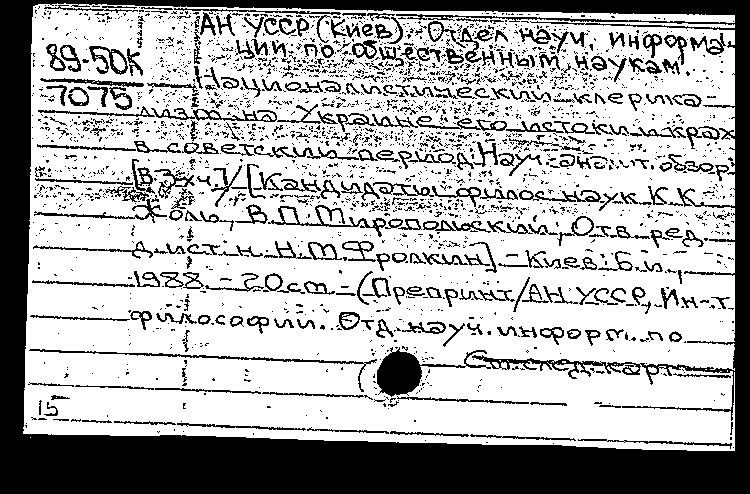 АН УССР (Киев). Отдел науч. информа-
ции по общественным наукам.
89-50К
7075
Националистический клерика-
лизм на Украине: его истоки и крах
в советский период: Науч.-аналит. обзор:
[В 3-х ч.] / [Кандидаты филос. наук К.К.
Жоль, В.П. Миропольский; Отв. ред.
д. ист. н. Н.М. Фролкин]. - Киев: Б. и.,
1988. - 20 см. - (Препринт / АН УССР, Ин-т
философии. Отд. науч. информ. по
См. след. карт.
15